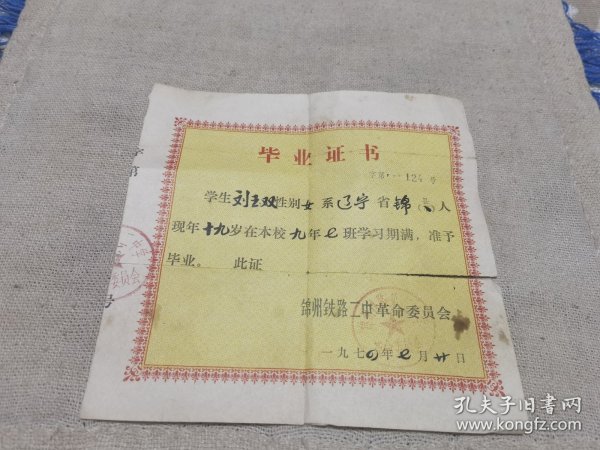 毕业证书
字第 124 号
学生刘玉双性别女系辽宁省锦 人
现年十九岁在本校九年七班学习期满，准予
毕业。 此证
锦州铁路二中革命委员会
一九七〇年七月廿日
委员会
号
孔夫子旧书网
kongfz.com